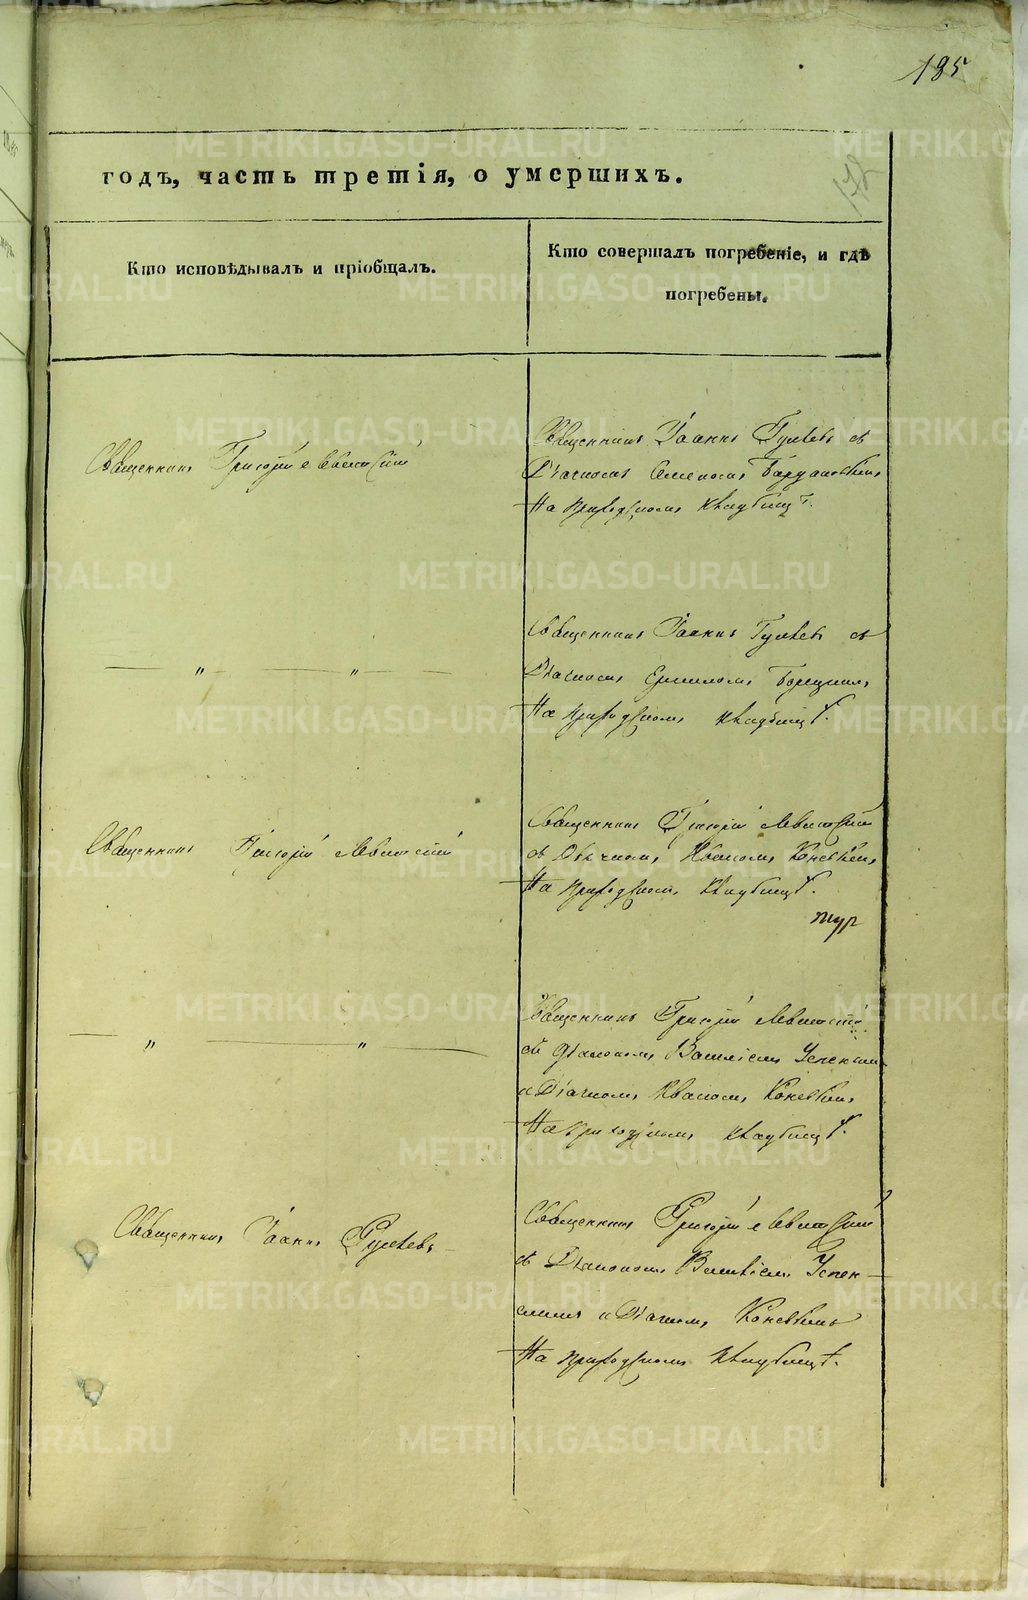 185
годъ, часть третія, о умершихъ.
Кто исповѣдывалъ и пріобщалъ.
Кто совершалъ погребеніе, и гдѣ
погребены.
Священникъ Григорій Левитскій
Священникъ Іоаннъ Гуляевъ съ
Дьячкомъ Семеномъ
На приходскомъ кладбищѣ.
Священникъ Іоаннъ Гуляевъ съ
— " — " —
Дьячкомъ
На приходскомъ кладбищѣ.
Священникъ Григорій Левитскій
Священникъ Григорій Левитскій
съ Дьячкомъ Иваномъ Коневымъ
На приходскомъ кладбищѣ.
Священникъ Григорій Левитскій
— " — " —
съ Діакономъ Василіемъ Успенскимъ
и Дьячкомъ Иваномъ Коневымъ
На приходскомъ кладбищѣ.
Священникъ Іоаннъ Гуляевъ
Священникъ Григорій Левитскій
съ Діакономъ Василіемъ Успен-
скимъ и Дьячкомъ Коневымъ
На приходскомъ кладбищѣ.
METRIKI.GASO-URAL.RU